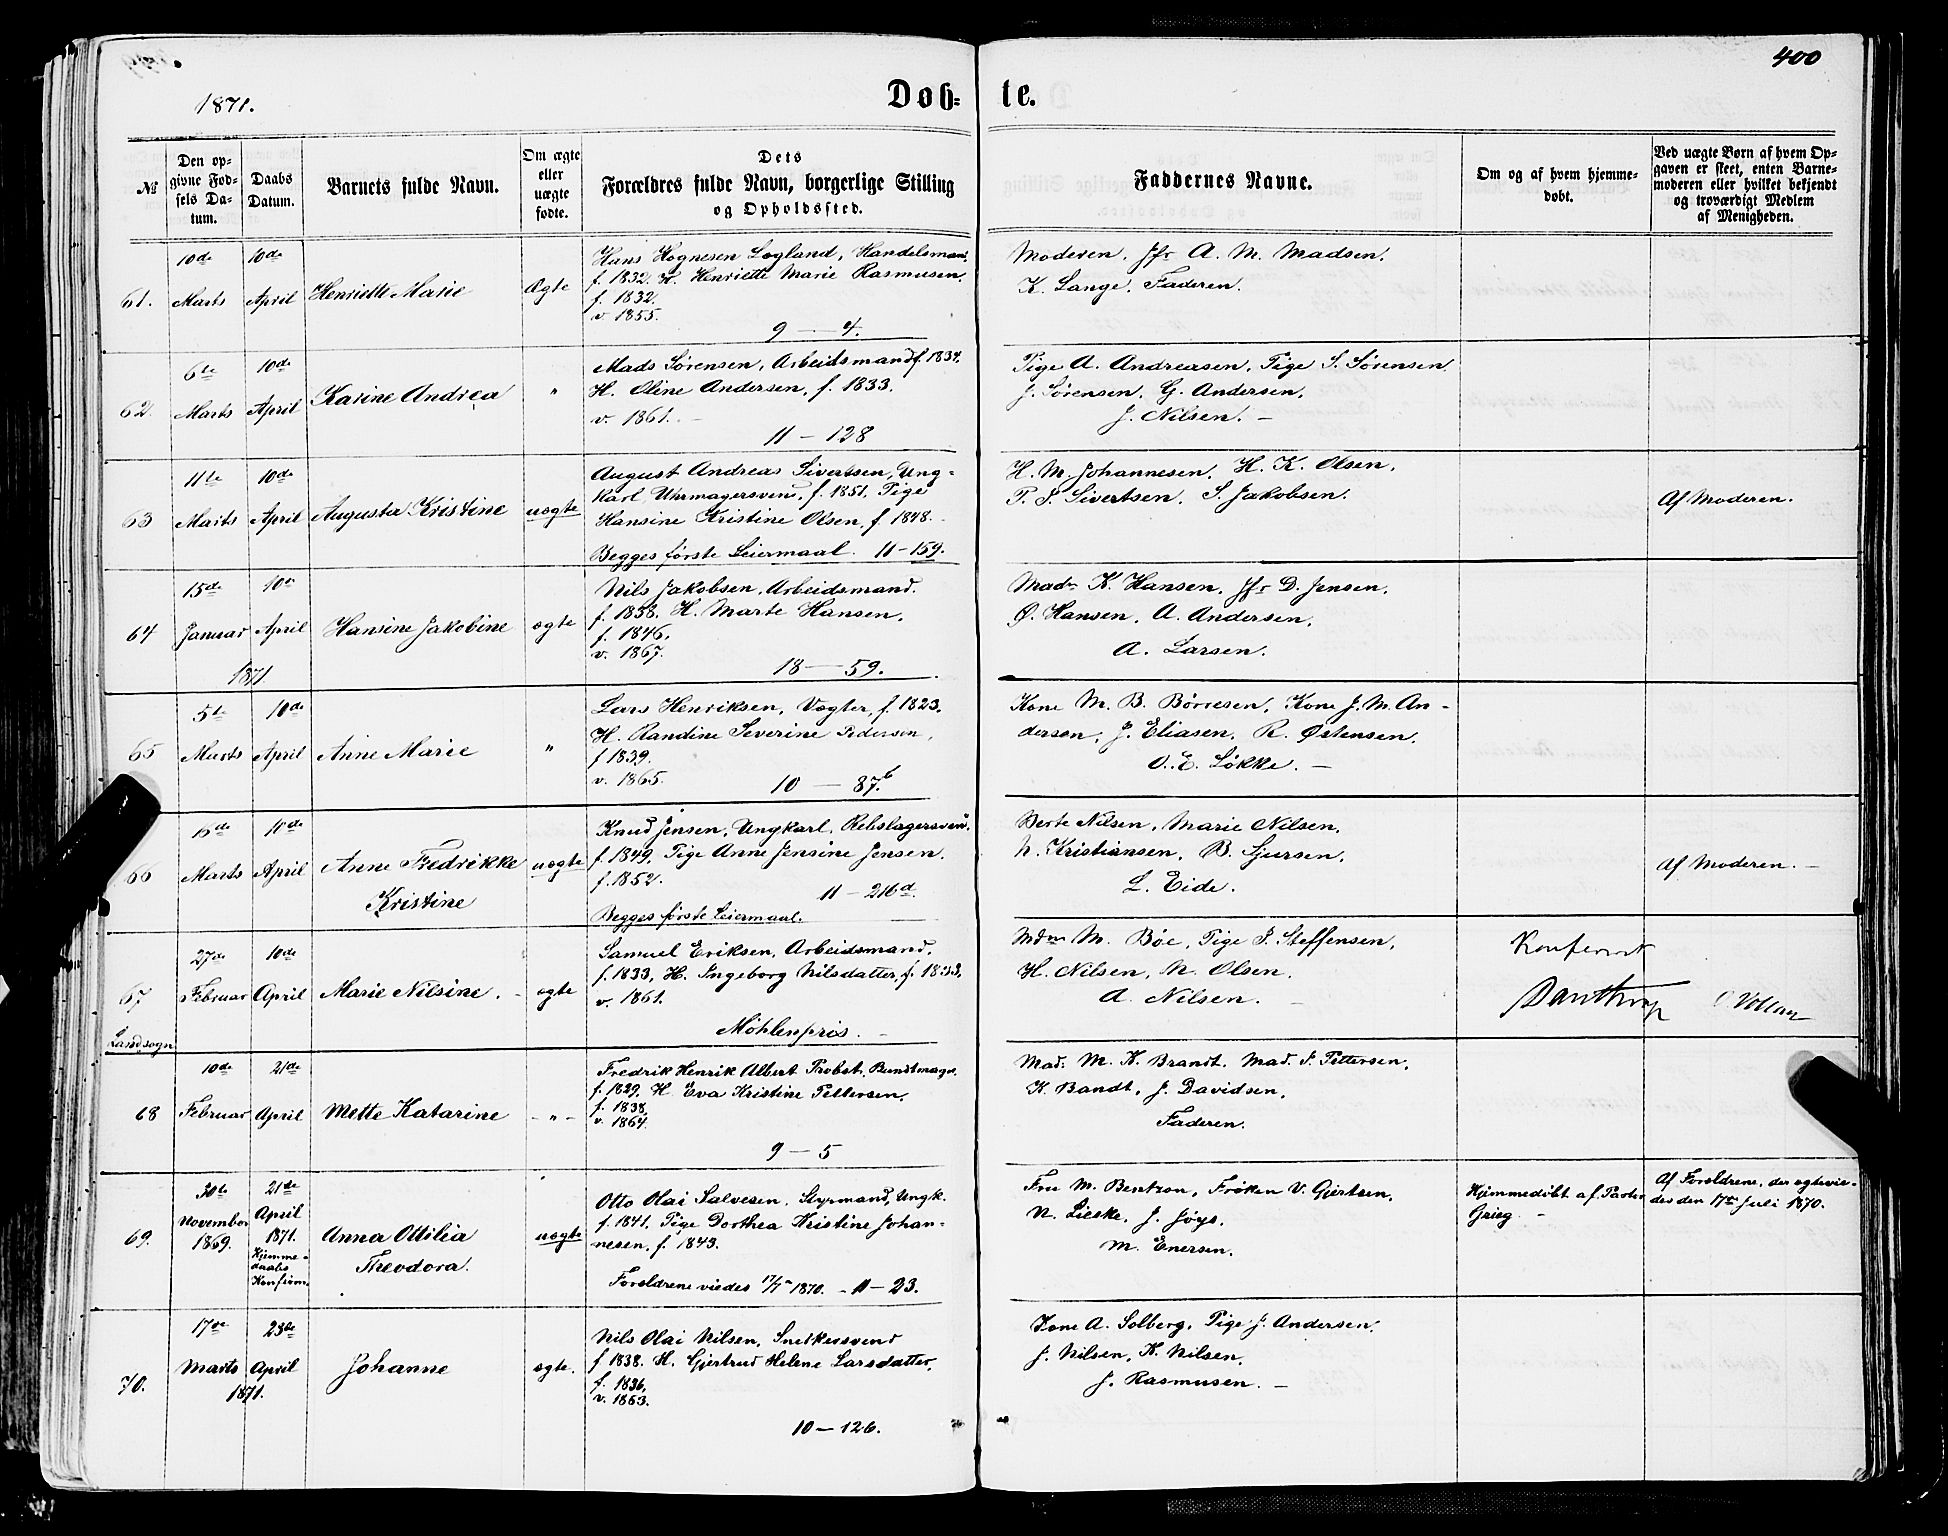 400
1871.
Døb-
te.
№
Den op-
givne Fød-
sels Da-
tum.
Daabs
Datum.
Barnets fulde Navn.
Om ægte
eller
uægte
fødte.
Dets
Forældres fulde Navn, borgerlige Stilling
og Opholdssted.
Faddernes Navne.
Om og af hvem hjemme-
døbt.
Ved uægte Børn af hvem Op-
gaven er skeet, enten Barne-
moderen eller hvilket bekjendt
og troværdigt Medlem
af Menigheden.
61.
10de
Marts
10de
April
Henriette Marie
Ægte
Hans Hognesen Løgland, Handelsmand,
f. 1832. H. Henriette Marie Rasmusen.
f. 1832.
v. 1855.
9 — 4.
Moderen. Jfr A. M. Madsen.
K. Lange. Faderen.
62
6te
Marts
10de
April
Karine Andrea
"
Mads Sørensen, Arbeidsmand f. 1834.
H. Oline Andersen, f. 1833.
v. 1861. -
11 - 128
Pige A. Andreasen, Pige S. Sørensen
J. Sørensen, G. Andersen,
J. Nilsen. -
63
11te
Marts
10de
April
Augusta Kristine
uægte
August Andreas Sivertsen, Ung-
karl Uhrmagersvend, f. 1851. Pige
Hansine Kristine Olsen, f. 1848.
Begges første Leiermaal. 11-159.
H. M. Johannesen. H. K. Olsen.
P. S. Sivertsen. S. Jakobsen.
Af Moderen.
64
15de
Januar
1871
10de
April
Hansine Jakobine
ægte
Nils Jakobsen, Arbeidsmand.
f. 1838. H. Marte Hansen,
f. 1846.
v. 1867.
18 — 59.
Madm K. Hansen, Jfr D. Jensen,
Ø. Hansen, A. Andersen,
A. Larsen.
65
5te
Marts
10de
April
Anne Marie
"
Lars Henriksen, Vægter, f. 1823.
H. Randine Severine Pedersen,
f 1839.
v. 1865.
10 — 87b
Kone M. B. Børresen, Kone J. M. An-
dersen, J. Eliasen, R. Østensen,
O. E. Løkke. -
66
15de
Marts
11de
April
Anne Fredrikke
Kristine
uægte
Knud Jensen, Ungkarl, Rebslagersvend,
f. 1849. Pige Anne Jensine Jensen.
f. 1852.
11 - 216d.
Begges første Leiermaal.
Berte Nilsen, Marie Nilsen,
N. Kristiansen, B. Sjursen,
L. Eide.
Af Moderen. -
67
Landsogn
27de
Februar
10de
April
Marie Nilsine. -
ægte
Samuel Eriksen, Arbeidsmand,
f. 1833, H. Ingeborg Nilsdatter, f. 1833.
v. 1861.
Møhlenpris. -
Mdm M. Bøe, Pige S. Steffensen,
H. Nilsen, N. Olsen,
A. Nilsen. -
Konfereret
68
10de
Februar
21de
April
Mette Katarine
- " -
Fredrik Henrik Albert Probst, Bundtmager.
f. 1829. H. Eva Kristine Pettersen.
f. 1838.
v. 1864.
9 - 5
Mad. M. K. Brandt. Mad. S. Pettersen,
K. Bandt, J. Davidsen,
Faderen.
69.
30te
November
1869.
21de
April
1871.
Hjemme-
daabs
Konfirm.
Anna Ottilia
Theodora.
uægte
Otto Olai Salvesen. Styrmand, Ungk.
f. 1841. Pige Dorthea Kristine Johan-
nesen, f. 1843.
Forældrene viedes 17/7 1870. - 11 - 23.
Fru M. Bentzon, Frøken V. Gjertsen,
N. Lieske, J. Joys.
M. Enersen.
Hjemmedøbt af Pastor
Grieg. -
Af Forældrene, der ægtevie-
des den 17de Juli 1870.
70.
17de
Marts
1871.
23de
April
Johanne
ægte.
Nils Olai Nilsen, Snedkersvend
f 1838. H. Gjertrud Helene Larsdatter,
f. 1836.
v. 1863.
10 - 126.
Kone A. Solberg, Pige J. Andersen,
J. Nilsen, K. Nilsen,
J. Rasmusen. -